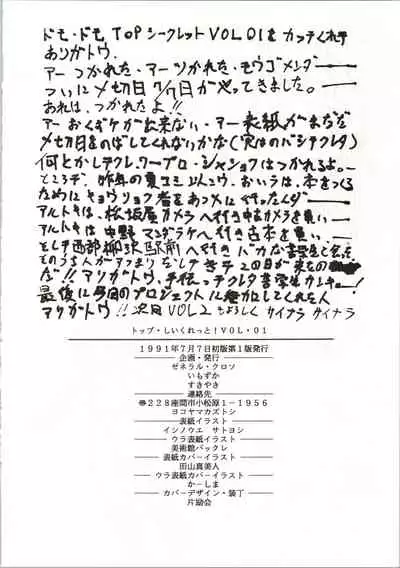 ドモ・ドモ TOPシークレットVOL 01をカッテくれテ
アリガトウ.
アーつかれた・アーツかれた・モウゴメンダー
ついに〆切日7/7日がやってきました。
あれは、つかれたよ!!
アーおくずケが出来ない・アー表紙がまだだ
〆切日をのばしてくれないかな(実はのバシテクレタ)
何とかしテクレ.ワープロ・シャショクはつかれるよ。
ところデ、昨年の夏コミ以ショウ、おいらは、本をつくる
ためにキョウリョク者をあつメに行ったんダー
アルトキは、松坂屋カメラへ行き中古カメラを買い
アルトキは中野マンダラケへ行き古本を買い、
そしテ西部柳沢駅前へ行き
だ!! アリガトウ、手伝ってクレタ
最後に今回のプロジェクトに参加してくれた人
アリガトウ!! 次回 VOL 2 もよろしく サイナラ サイナラ
トップ・しいくれっと!VOL・01
1991年7月7日初版第1版発行
企画・発行
ゼネラル・クロソ
いもずか
すきやき
連絡先
〠228座間市小松原1-1956
ヨコヤマカズトシ
表紙イラスト
イシノウエ サトヨシ
ウラ表紙イラスト
美術館バックレ
表紙カバーイラスト
田山真美人
ウラ表紙カバーイラスト
かーしま
カバーデザイン・装丁
片励会